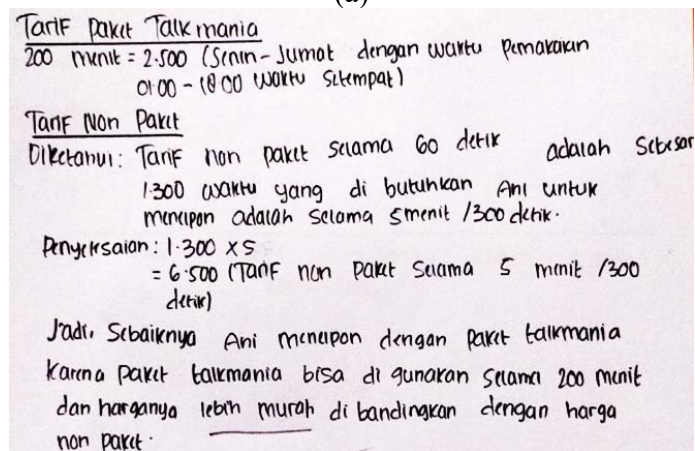 (a)
Tarif Paket Talkmania
200 menit = 2.500 (Senin-Jumat dengan waktu pemakaian
01.00 - 18.00 waktu setempat)
Tarif Non Paket
Diketahui: Tarif non paket selama 60 detik adalah sebesar
1.300 waktu yang di butuhkan Ani untuk
menelpon adalah selama 5 menit /300 detik.
Penyelesaian: 1.300 x 5
= 6.500 (Tarif non paket selama 5 menit /300
detik)
Jadi, Sebaiknya Ani menelpon dengan paket talkmania
karena paket talkmania bisa di gunakan selama 200 menit
dan harganya lebih murah di bandingkan dengan harga
non paket.